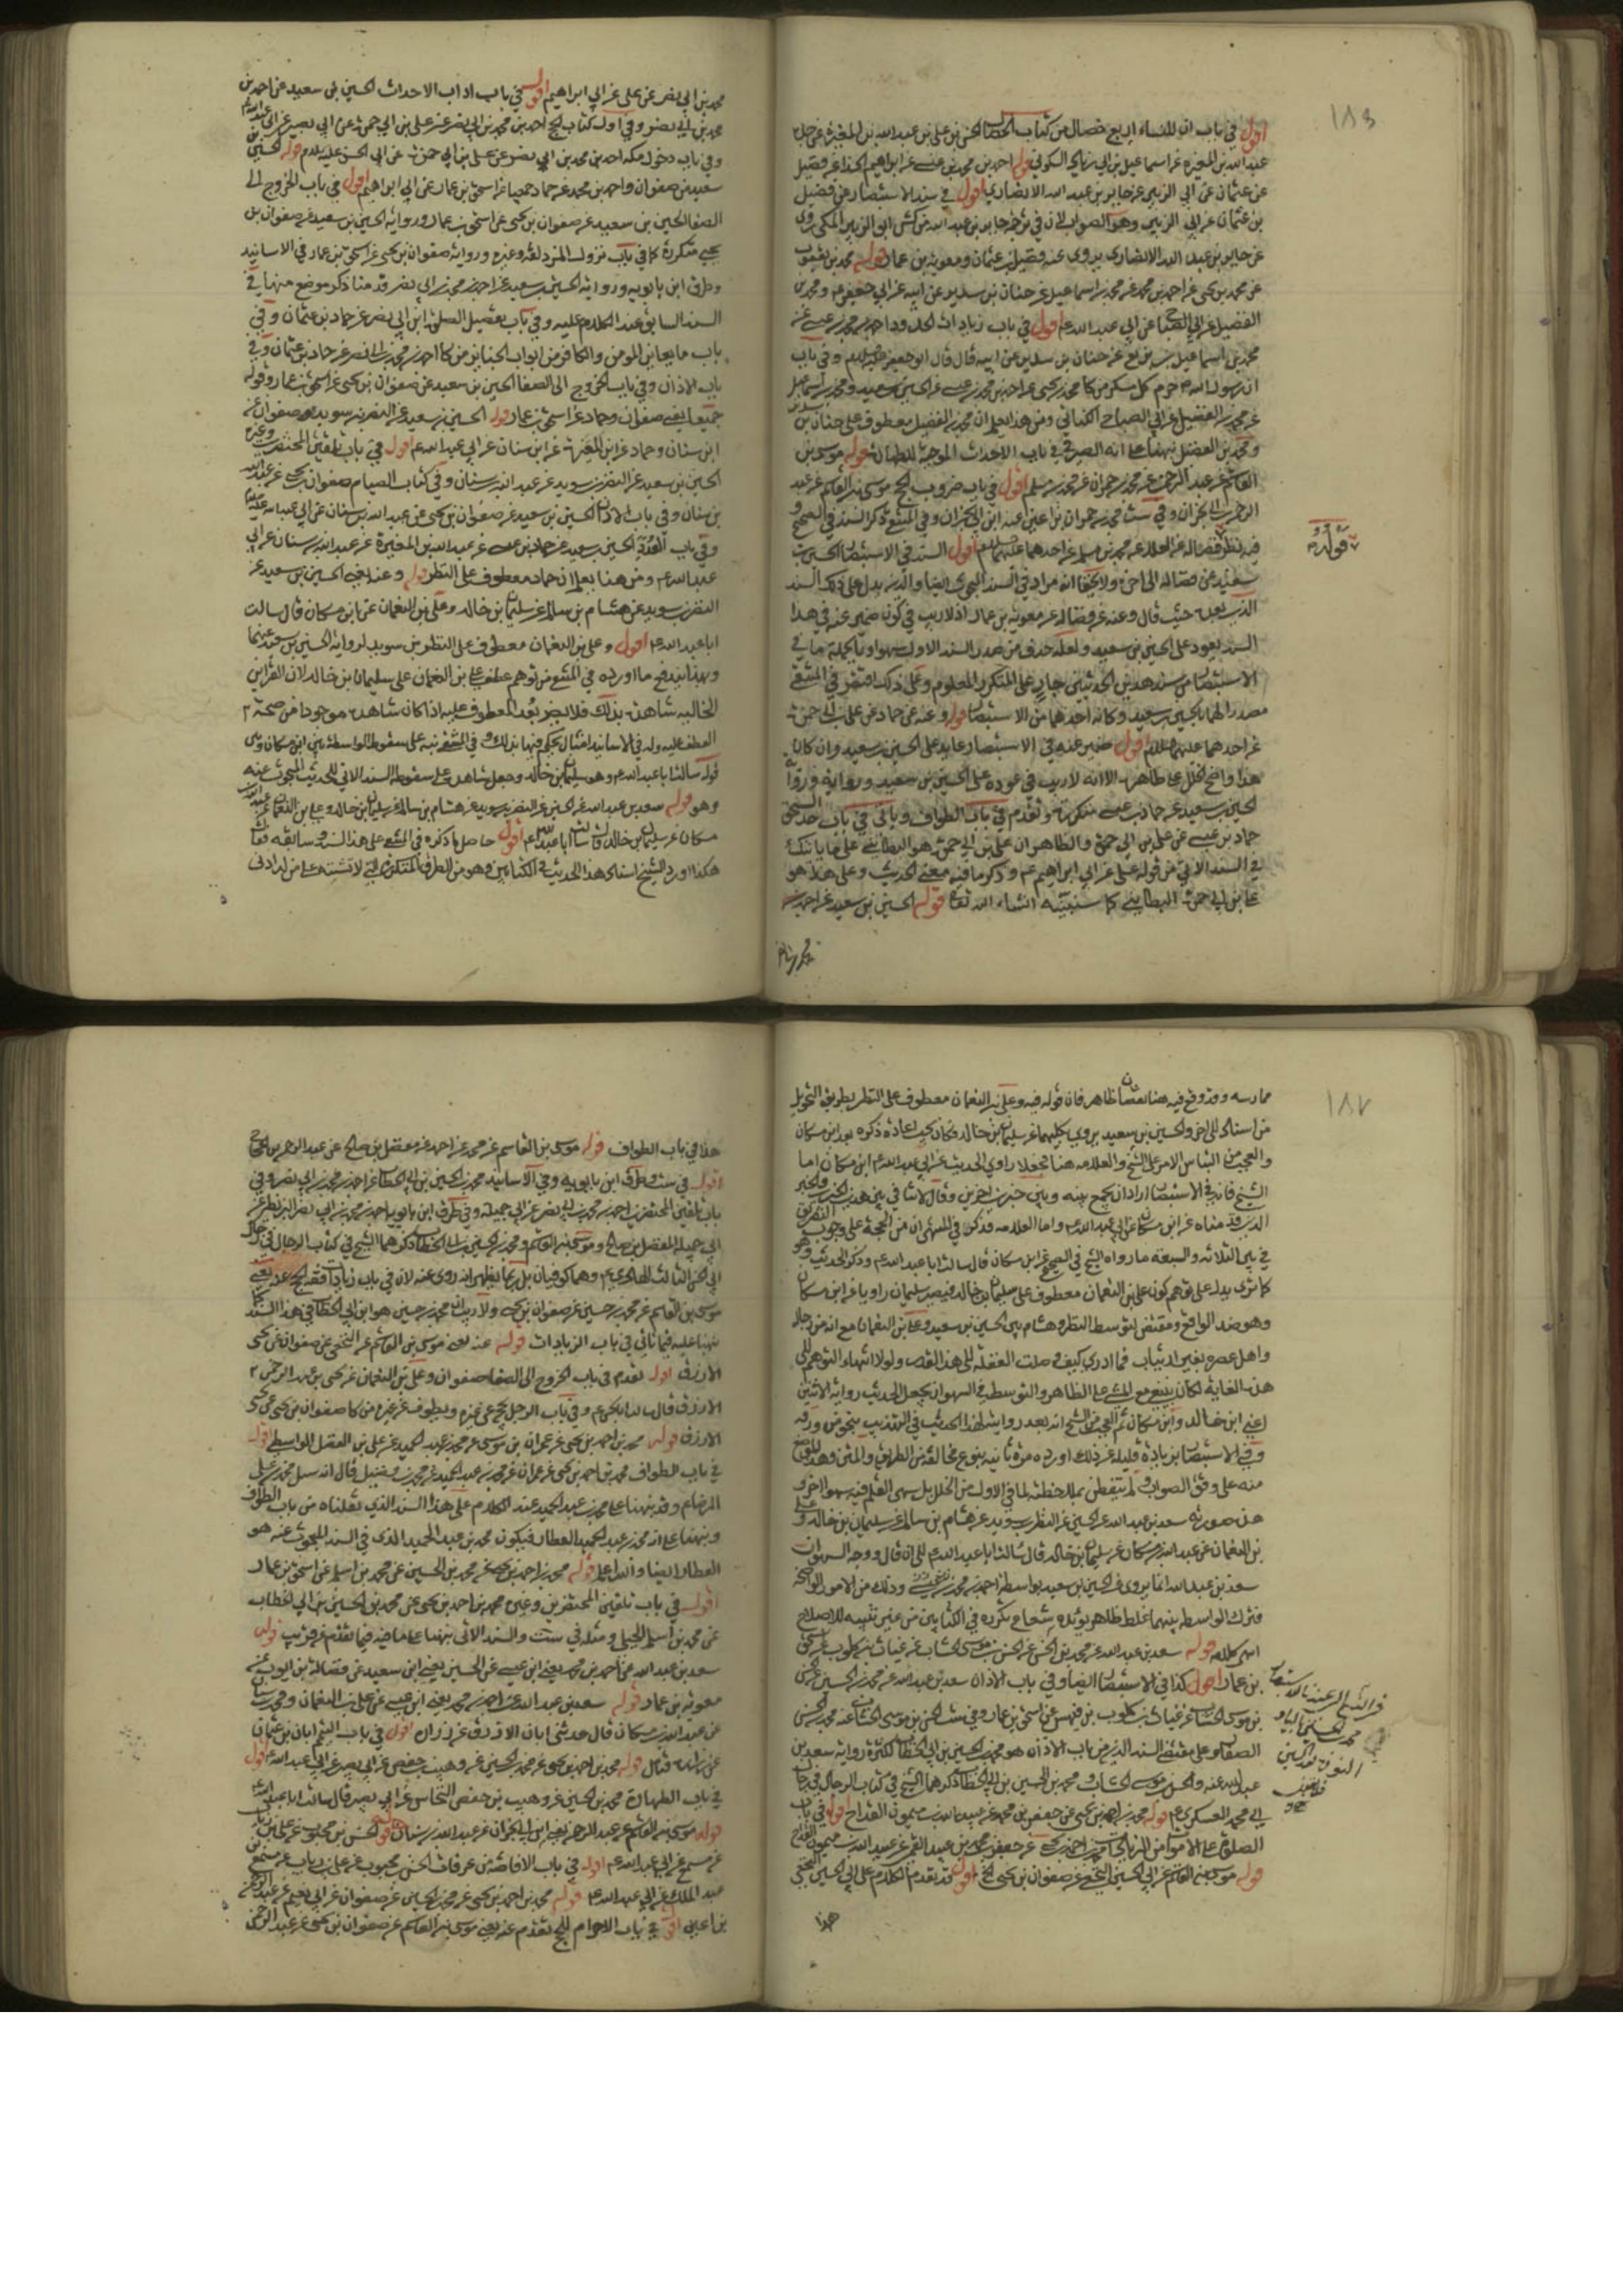 ١٨٦
اقول في باب ان للنساء اربع خصال من كتاب الخصال الحسن بن علي بن عبد الله بن المغيرة عن جده
عبد الله بن المغيرة عن اسماعيل بن ابي زياد السكوني قوله احمد بن محمد بن عيسى عن ابراهيم الحذا عن فضيل
عن عثمان عن ابي الزبير عن جابر بن عبد الله الانصاري اقول في سند الاستبصار عن فضيل
بن عثمان عن ابي الزبير وهو الصواب لان في ترجمة جابر بن عبد الله من كش ابو الزبير المكي روى
عن جابر بن عبد الله الانصاري يروى عنه فضيل بن عثمان ومعوية بن عمار قوله محمد بن يعقوب
عن محمد بن يحيى عن احمد بن محمد عن محمد بن اسماعيل عن حنان بن سدير عن ابيه عن ابي جعفر ع ومحمد بن
الفضيل عن ابي الصباح عن ابي عبد الله ع اقول في باب زيادات الحد واحمد بن محمد بن عيسى عن
محمد بن اسماعيل بن بزيع عن حنان بن سدير عن ابيه قال قال ابو جعفر عليه السلام وفي باب
ان رسول الله حرم كل مسكر من كا محمد بن يحيى عن احمد بن محمد بن عيسى عن الحسين بن سعيد ومحمد بن اسماعيل
عن محمد بن الفضيل عن ابي الصباح الكناني ومن هذا يعلم ان محمد بن الفضيل معطوف على حنان بن سدير
ومحمد بن الفضيل نبهنا على انه الصيرفي في باب الاحداث الموجبة للطهارة قوله موسى بن
القاسم عن عبد الرحمن عن محمد بن حمران عن محمد بن مسلم اقول في باب ضروب الحج موسى بن القاسم عن عبد
الرحمن بن ابي نجران وفي ست محمد بن حمران بن اعين عنه ابن ابي نجران وفي المنتقى ذكر السند في الصحيح و
فيه نظر فضاله عن العلا عن محمد بن مسلم عن احدهما عليهما السلام اقول السند في الاستبصار الحسين بن
سعيد عن فضاله الى اخره ولا يخفى انه مراد في السند المبحوث ايضا والذي يدل على ذلك السند
الذي بعده حيث قال وعنه عن فضاله عن معوية بن عمار اذ لا ريب في كون ضمير عنه في هذا
السند يعود على الحسين بن سعيد ولعله حذف من صدر السند الاول سهوا وبالجملة ما في
الاستبصار من سند هذين الحديثين جار على المتكرر المعلوم وعلى ذلك اقتصر في المنتقى
مصدرا لهما بالحسين بن سعيد وكانه اخذهما من الاستبصار قوله وعنه عن حماد عن علي بن ابي حمزة
عن احدهما عليهما السلام اقول ضمير عنه في الاستبصار عايد على الحسين بن سعيد وان كان
هذا واضح الخلل على ظاهره الا انه لا ريب في عوده على الحسين بن سعيد ورواية
الحسين بن سعيد عن حماد بن عيسى متكررة وتقدم في باب الطواف وياتي في باب
حماد بن عيسى عن علي بن ابي حمزة والظاهر ان علي بن ابي حمزة هو البطايني على ما ياتيك
في السند الاتي من قوله علي عن ابي ابراهيم ع وذكر ما فيه معنى الحديث وعلى هذا هو
علي بن ابي حمزة البطايني كما سنبينه انشاء الله تعالى قوله الحسين بن سعيد عن احمد بن
قوله
محمد بن ابي نصر عن علي عن ابي ابراهيم اقول في باب اداب الاحداث الحسين بن سعيد عن احمد بن
محمد بن ابي نصر وفي اول كتاب الحج احمد بن محمد بن ابي نصر عن علي بن ابي حمزة عن ابي بصير عن ابي عبد الله
وفي باب دخول مكة احمد بن محمد بن ابي نصر عن علي بن ابي حمزة عن ابي الحسن عليه السلام قوله الحسين بن
سعيد عن صفوان واحمد بن محمد عن حماد جميعا عن اسحق بن عمار عن ابي ابراهيم اقول في باب الخروج الى
الصفا الحسين بن سعيد عن صفوان بن يحيى عن اسحق بن عمار ورواية الحسين بن سعيد عن صفوان بن
يحيى متكررة كما في باب نزول المزدلفة وغيره ورواية صفوان بن يحيى عن اسحق بن عمار في الاسانيد
وطرق ابن بابويه ورواية الحسين بن سعيد عن احمد بن محمد بن ابي نصر قدمنا ذكر موضع منها في
السند السابق عند الكلام عليه وفي باب تفصيل الصلوة ابن ابي نصر عن حماد بن عثمان وفي
باب ما يعاين المومن والكافر من ابواب الجنايز من كا احمد بن محمد بن ابي نصر عن حماد بن عثمان وفي
باب الاذان وفي باب الخروج الى الصفا الحسين بن سعيد عن صفوان بن يحيى عن اسحق بن عمار وقوله
جميعا يعني صفوان وحماد عن اسحق بن عمار قوله الحسين بن سعيد عن النضر بن سويد وصفوان عن
ابن سنان وحماد عن ابن المغيرة عن ابن سنان عن ابي عبد الله ع اقول في باب تلقين المحتضرين وغيره
الحسين بن سعيد عن النضر بن سويد عن عبد الله بن سنان وفي كتاب الصيام صفوان بن يحيى عن عبد الله
بن سنان وفي باب الاذان الحسين بن سعيد عن صفوان بن يحيى عن عبد الله بن سنان عن ابي عبد الله عليه السلام
وفي باب الحسين بن سعيد عن حماد بن عيسى عن عبد الله بن المغيرة عن عبد الله بن سنان عن ابي
عبد الله ع ومن هنا يعلم ان حماد معطوف على النظر قوله وعنه يعني الحسين بن سعيد عن
النضر بن سويد عن هشام بن سالم عن سليمان بن خالد وعلي بن النعمان عن ابن مسكان قال سالت
ابا عبد الله ع اقول وعلي بن النعمان معطوف على النظر بن سويد لرواية الحسين بن سعيد عنهما
وبهذا يندفع ما اورده في المنتقى من توهم عطف علي بن النعمان على سليمان بن خالد لان القراين
الحالية شاهدة بذلك فلا يضر بعد المعطوف عليه اذا كان شاهده موجودا من صحة
العطف عليه وله في الاسانيد امثال يحكم فيها بذلك وفي المنتقى نبه على سقوط الواسطة بين ابن مسكان وبين
قوله سالت ابا عبد الله ع وهو سليمان بن خالد وجعل شاهده على سقوطه السند الاتي للحديث المبحوث عنه
وهو قوله سعد بن عبد الله عن الحسين عن النضر بن سويد عن هشام بن سالم عن سليمان بن خالد وعلي بن النعمان عن عبد الله بن
مسكان عن سليمان بن خالد قال سالت ابا عبد الله ع اقول حاصل ما ذكره في المنتقى على هذا السند وسابقه
هكذا اورد الشيخ اسناد هذا الحديث في الكتابين وهو من الطرق المتكررة التي لا تشتبه على من له ادنى
١٨٧
ممارسه وقد وقع فيه هنا نقصان ظاهر فان قوله فيه وعلي بن النعمان معطوف على النظر بطريق التحويل
من اسناد الى اخر والحسين بن سعيد يروى بكليهما عن سليمان بن خالد فكان يجب اعادة ذكره بعد ابن مسكان
والعجب من التباس الامر على الشيخ والعلامه هنا فجعلا راوي الحديث عن ابي عبد الله ع ابن مسكان اما
الشيخ فانه في الاستبصار اراد ان يجمع بينه وبين خبرين اخرين وقال لا تنافي بين هذين الخبرين والخبر
الذي قدمناه عن ابن مسكان عن ابي عبد الله ع واما العلامه فذكر في المنتهى ان من الحجة على وجوب التفريق
في بين الثلاثه والسبعة ما رواه الشيخ في الصحيح عن ابن مسكان قال سالت ابا عبد الله ع وذكر الحديث وهو
كما ترى يدل على توهم كون علي بن النعمان معطوف على سليمان بن خالد فيصير سليمان راويا عن ابن مسكان
وهو ضد الواقع ومقتض لتوسط النظر وهشام بين الحسين بن سعيد وعلي بن النعمان مع انه من رجاله
واهل عصره بغير ارتياب فما ادري كيف وصلت الغفله الى هذا القدر ولولا انتهاء التوهم الى
هذه الغاية لكان ينبغي مع المشي على الظاهر والتوسط في السهو ان يجعل الحديث رواية الاثنين
اعني ابن خالد وابن مسكان ثم العجب من الشيخ انه بعد روايته لهذا الحديث في التهذيب بنحو من ورقه
وفي الاستبصار بزيادة قليله عن ذلك اورده مرة ثانيه بنوع مخالفة في الطريق والمتن وهذا الموضع
منه على وفق الصواب ولم يتفطن بملاحظته لما في الاول من الخلل بل سهى القلم فيه سهوا اخر و
هذه صورته سعد بن عبد الله عن الحسين عن النظر بن سويد عن هشام بن سالم عن سليمان بن خالد وعلي
بن النعمان عن عبد الله بن مسكان عن سليمان بن خالد قال سالت ابا عبد الله ع الى ان قال ووجه السهو ان
سعد بن عبد الله انما يروى عن الحسين بن سعيد بواسطة احمد بن محمد بن عيسى وذلك من الامور الواضحة
فترك الواسطه بينهما غلط ظاهر يؤيده شعاع تكرره في الكتابين من غير تنبيه للاصلاح
انتهى كلامه قوله سعد بن عبد الله عن محمد بن الحسن عن الحسن بن موسى الخشاب عن غياث بن كلوب عن اسحق
بن عمار اقول كذا في الاستبصار ايضا وفي باب الاذان سعد بن عبد الله عن محمد بن الحسين عن الحسن
بن موسى الخشاب عن غياث بن كلوب بن فيهس عن اسحق بن عمار وفي ست الحسن بن موسى الخشاب عنه محمد بن الحسن
الصفار وعلى مقتضى السند الذي من باب الاذان هو محمد بن الحسين بن ابي الخطاب لكثرة رواية سعد بن
عبد الله عنه والحسن بن موسى الخشاب ومحمد بن الحسين بن ابي الخطاب ذكرهما الشيخ في كتاب الرجال في رجال
ابي محمد العسكري ع قوله محمد بن احمد بن يحيى عن جعفر بن محمد عن عبيد الله بن ميمون القداح اقول في باب
الصلوة على الاموات من الزيادات محمد بن احمد بن يحيى عن جعفر بن محمد بن عبيد الله القمي عن عبد الله بن ميمون القداح
قوله موسى بن القاسم عن ابي الحسين النخعي عن صفوان بن يحيى الخ اقول قد تقدم الكلام على ابي الحسين النخعي
هذا
هذا في باب الطواف قوله موسى بن القاسم عن محمد عن احمد عن مفضل بن صالح عن عبد الرحمن بن الحجاج
اقول في ست وطرق ابن بابويه وفي الاسانيد محمد بن الحسين بن ابي الخطاب عن احمد بن محمد بن ابي نصر وفي
باب تلقين المحتضرين احمد بن محمد بن ابي نصر عن ابي جميله وفي طرق ابن بابويه احمد بن محمد بن ابي نصر البزنطي عن
ابي جميله المفضل بن صالح وموسى بن القاسم ومحمد بن الحسين بن ابي الخطاب ذكرهما الشيخ في كتاب الرجال في رجال
ابي الحسن الثالث الهادي ع وهما كوفيان بل ربما يظهر انه روى عنه لان في باب زيادات فقه الحج عنه يعني
موسى بن القاسم عن محمد بن حسين عن صفوان بن يحيى ولا ريب ان محمد بن حسين هو ابن ابي الخطاب في هذا السند كما
نبهنا عليه فيما ياتي في باب الزيادات قوله عنه يعني موسى بن القاسم عن النخعي عن صفوان عن يحيى
الازرق اقول تقدم في باب الخروج الى الصفا صفوان وعلي بن النعمان عن يحيى بن عبد الرحمن
الازرق قال سالت ابا الحسن ع وفي باب الرجل يحج عن غيره ويطوف عن غيره من كا صفوان بن يحيى عن يحيى
الازرق قوله محمد بن احمد بن يحيى عن عمران بن موسى عن محمد بن عبد الحميد عن علي بن الفضل الواسطي اقول
في باب الطواف محمد بن احمد بن يحيى عن عمران عن محمد بن عبد الحميد عن محمد بن فضيل قال انه سال محمد بن علي
الرضا ع وقد نبهنا على محمد بن عبد الحميد عند الكلام على هذا السند الذي نقلناه من باب الطواف
ونبهنا على انه محمد بن عبد الحميد العطار فيكون محمد بن عبد الحميد الذي في السند المبحوث عنه هو
العطار ايضا والله اعلم قوله محمد بن احمد بن يحيى عن محمد بن الحسين عن محمد بن اسلم عن اسحق بن عمار
اقول في باب تلقين المحتضرين وغيره محمد بن احمد بن يحيى عن محمد بن الحسين بن ابي الخطاب
عن محمد بن اسلم الجبلي ومثله في ست والسند الاتي نبهنا على ما فيه فيما تقدم عن قريب قوله
سعد بن عبد الله عن احمد بن محمد يعني ابن عيسى عن الحسين يعني ابن سعيد عن فضالة بن ايوب عن
معوية بن عمار قوله سعد بن عبد الله عن احمد بن محمد يعني ابن عيسى عن علي بن النعمان ومحمد بن سنان
عن عبد الله بن مسكان قال حدثني ابان الازرق عن زرارة اقول في باب التيمم ابان بن عثمان
عن زرارة فتامل قوله محمد بن احمد بن يحيى عن محمد بن الحسين عن وهيب بن حفص عن ابي بصير عن ابي عبد الله ع اقول
في باب الطهارة محمد بن الحسين عن وهيب بن حفص النخاس عن ابي بصير قال سالت ابا عبد الله ع
قوله موسى بن القاسم عن عبد الرحمن يعني ابن ابي نجران عن عبد الله بن سنان قوله الحسن بن محبوب عن علي بن رياب
عن مسمع عن ابي عبد الله ع اقول في باب الافاضة من عرفات الحسن بن محبوب عن علي بن رياب عن مسمع بن
عبد الملك عن ابي عبد الله ع قوله محمد بن احمد بن يحيى عن محمد بن الحسين عن صفوان عن ابي نعيم عن عبد الرحمن
بن اعين اقول في باب الاحرام للحج تقدم عنه يعني موسى بن القاسم عن صفوان بن يحيى عن عبد الرحمن